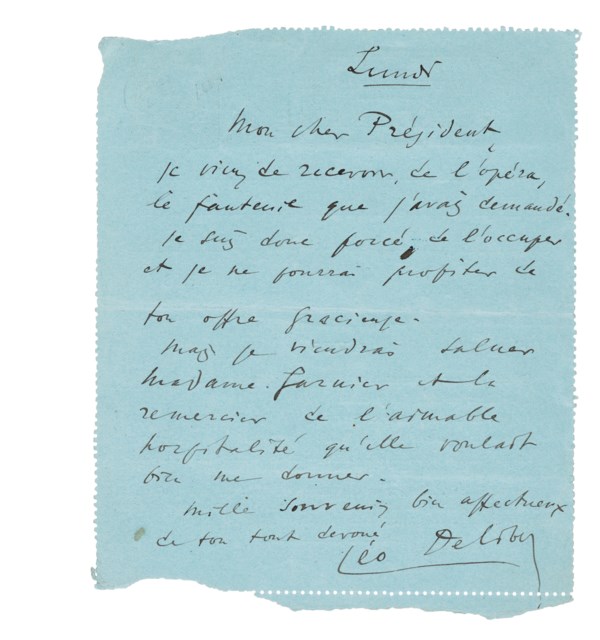 Lundi
Mon cher Président,
Je viens de recevoir, de l'opéra,
le fauteuil que j'avais demandé.
Je suis donc forcé de l'occuper
et je ne pourrai profiter de
ton offre gracieuse.
Mais je viendrai saluer
Madame Garnier et la
remercier de l'aimable
hospitalité qu'elle voulait
bien me donner.
Mille souvenirs bien affectueux
de ton tout dévoué
Léo Delibes